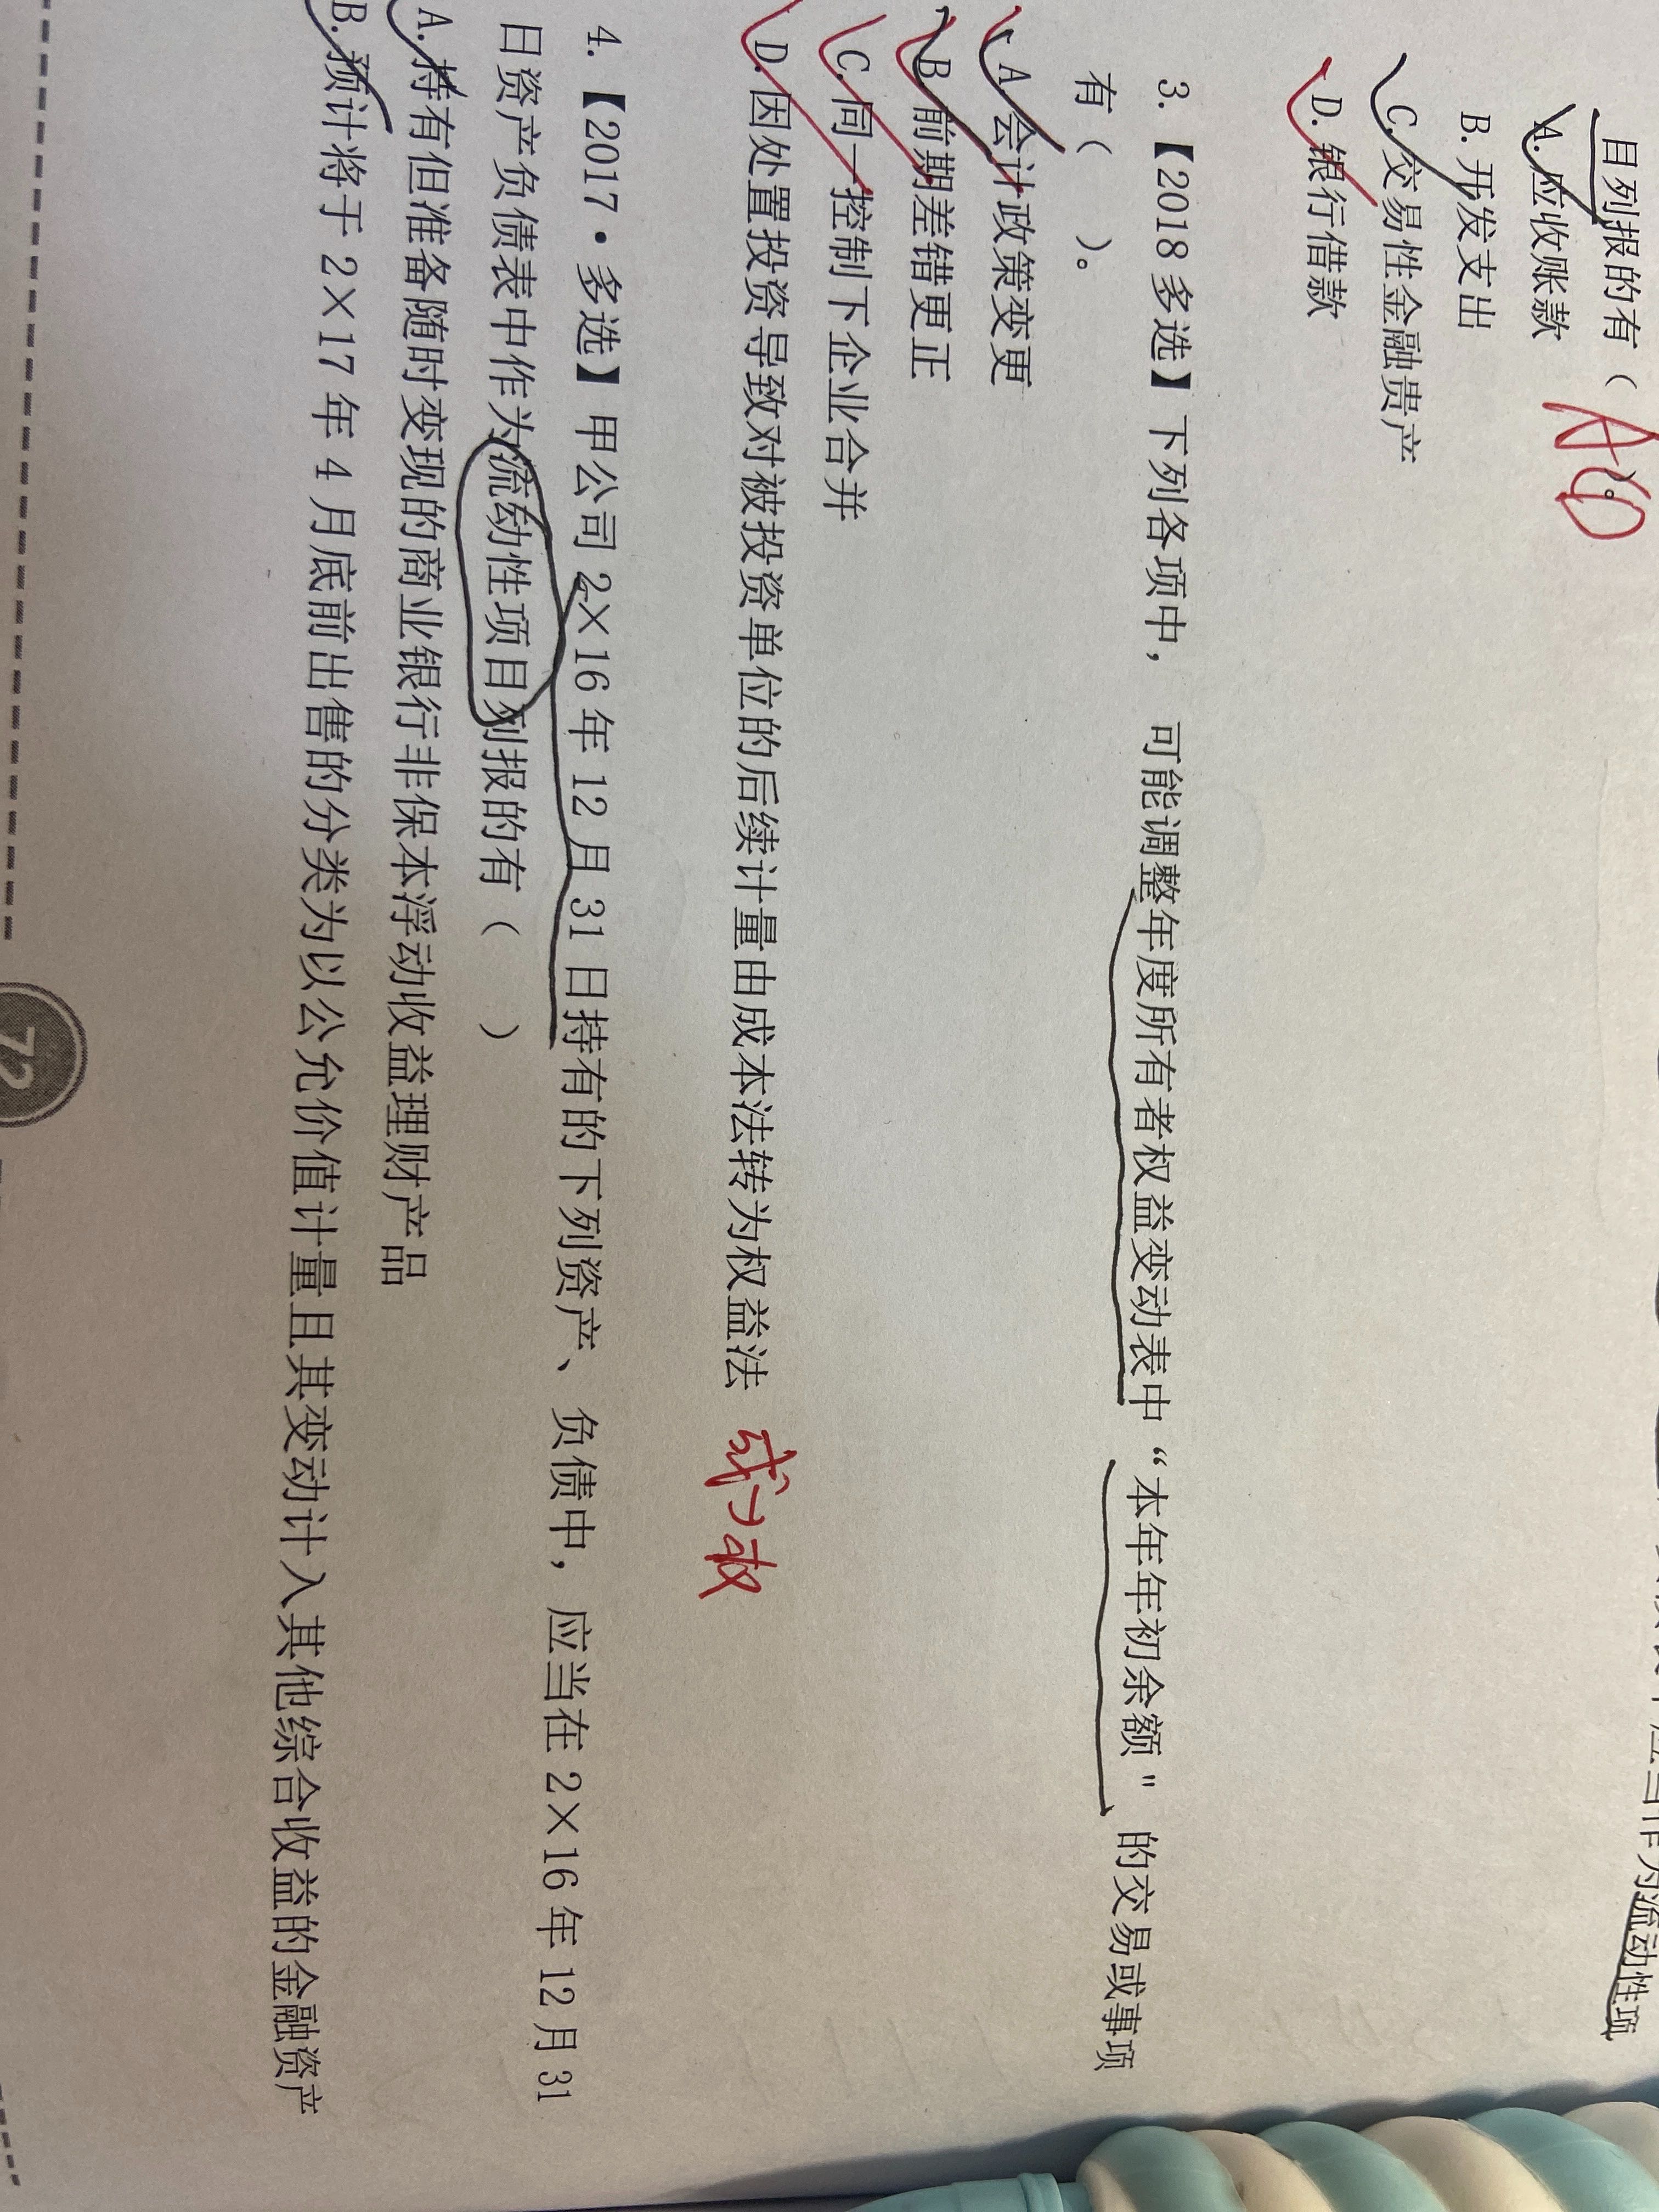 目列报的有（ ）。 ACD
A. 应收账款
B. 开发支出
C. 交易性金融贵产
D. 银行借款
3.【2018 多选】下列各项中， 可能调整年度所有者权益变动表中“本年年初余额" 的交易或事项
有（ ）。
A 会计政策变更
B 前期差错更正
C. 同一控制下企业合并
D. 因处置投资导致对被投资单位的后续计量由成本法转为权益法 成→权
4.【2017·多选】甲公司 2×16 年 12 月 31 日持有的下列资产、负债中，应当在 2×16 年 12 月 31
日资产负债表中作为流动性项目列报的有（ ）
A. 持有但准备随时变现的商业银行非保本浮动收益理财产品
B. 预计将于 2×17 年 4 月底前出售的分类为以公允价值计量且其变动计入其他综合收益的金融资产
72